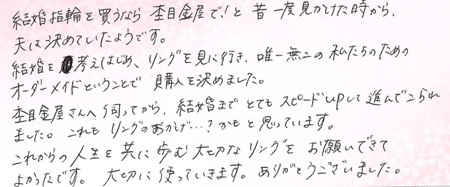 結婚指輪を買うなら杢目金屋で!と昔一度見かけた時から、
夫は決めていたようです。
結婚を考えはじめ、リングを見に行き、唯一無二の私たちのための
オーダーメイドということで購入を決めました。
杢目金屋さんへ伺ってから、結婚まで とてもスピードupして進んでこられ
ました。これもリングのおかげ…?かもと思っています。
これからの人生を共に歩む大切なリングを お願いできて
よかったです。大切に使っていきます。ありがとうございました。